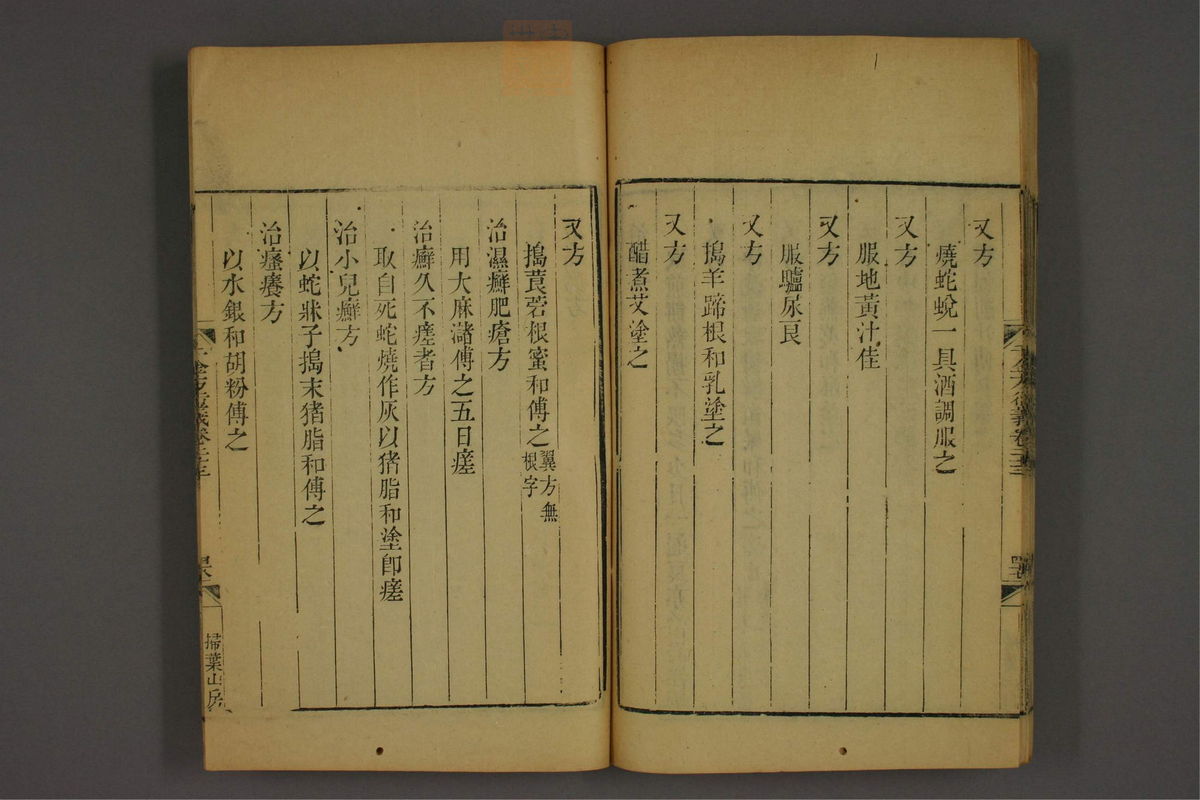 又方
燒蛇蛻一具酒調服之
又方
服地黃汁佳
又方
服驢尿良
又方
搗羊蹄根和乳塗之
又方
醋煮艾塗之
又方
搗莨菪根蜜和傅之翼方無根字
治濕癬肥瘡方
用大麻潴傅之五日瘥
治癬久不瘥者方
取自死蛇燒作灰以猪脂和塗卽瘥
治小兒癬方
以蛇牀子搗末猪脂和傅之
治瘙癢方
以水銀和胡粉傅之
掃葉山房